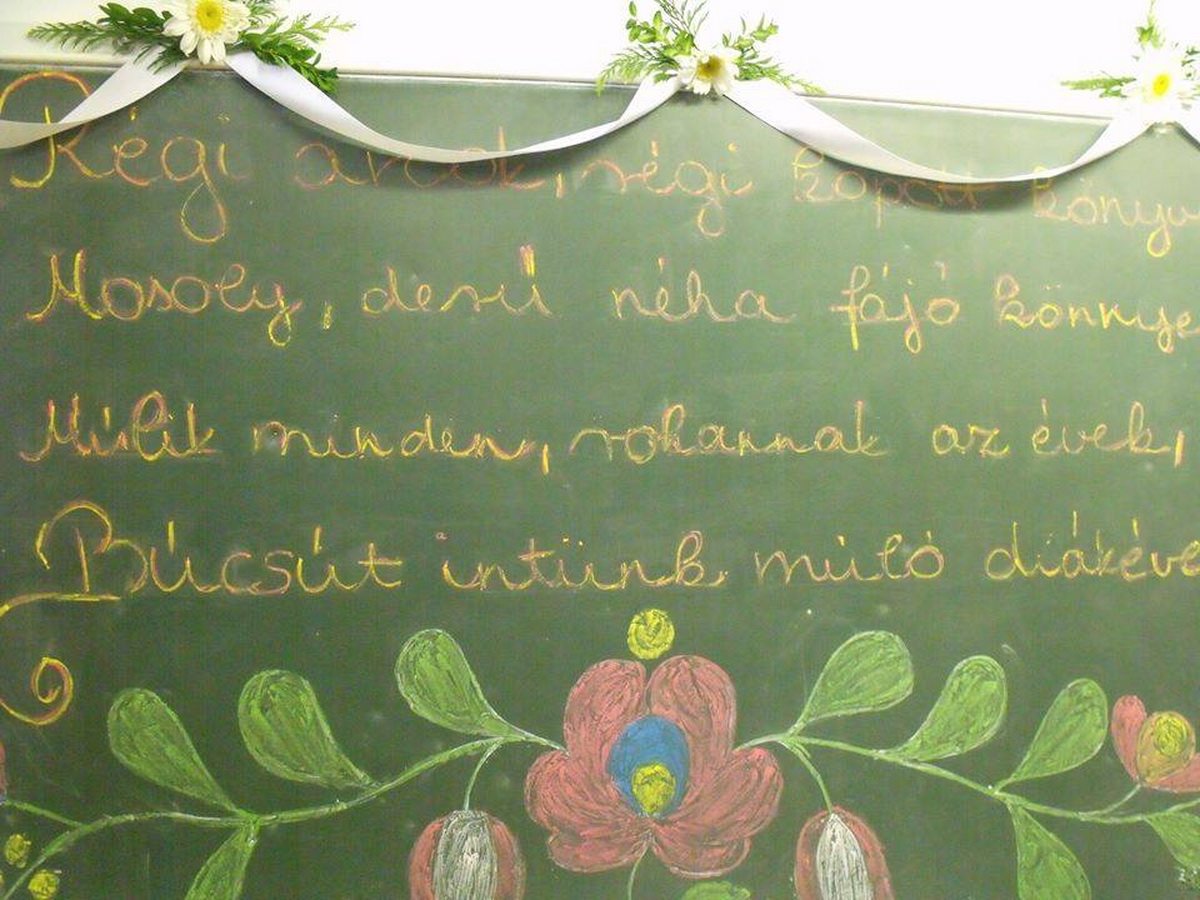 Régi arcok, régi kopott könyv
Mosoly, derű néha fájó könnye
Múlik minden, rohannak az évek,
Búcsút intünk múló diákéve